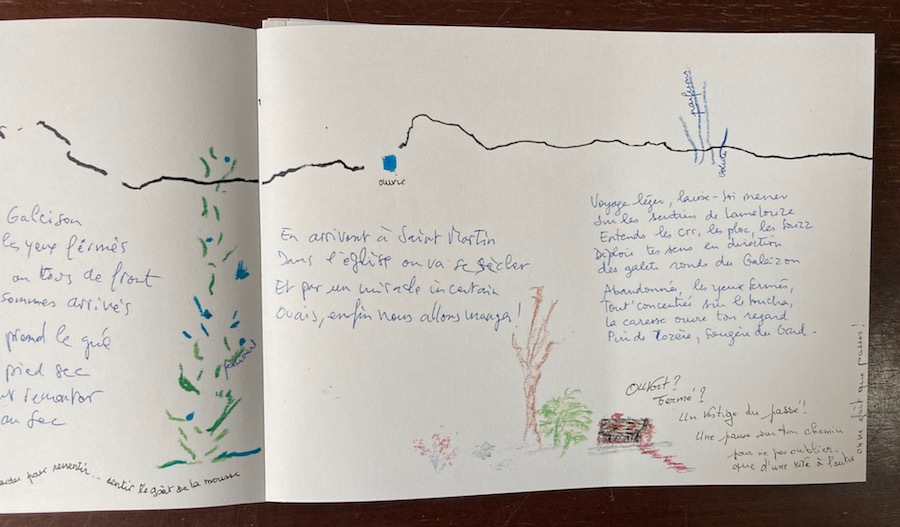 Galeison
les yeux fermés
ou tous de front
sommes arrivés
prend le gué
pied sec
remonter
au sec
par ressentir... sentir le goût de la mousse
ouvrir
En arrivant à Saint Martin
Dans l'église on va se sècher
Et par un miracle incertain
Ouais, enfin nous allons manger !
parfums
Voyage léger, laisse-toi mener
Sur les sentiers de Lamelouze
Entends les crr, les ploc, les buzz
Déploie tes sens en direction
des galets ronds du Galeizon
Abandonnée, les yeux fermés,
Tout concentré sur le touché,
la caresse ouvre ton regard
Pin de Lozère, Fougère du Gard.
Ouvert ?
Fermé ?
Un vestige du passé !
Une pause sur ton chemin
pour ne pas oublier
que d'une rive à l'autre
on ne fait que passer !